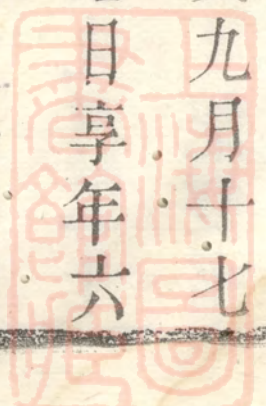 九月十七
日享年六